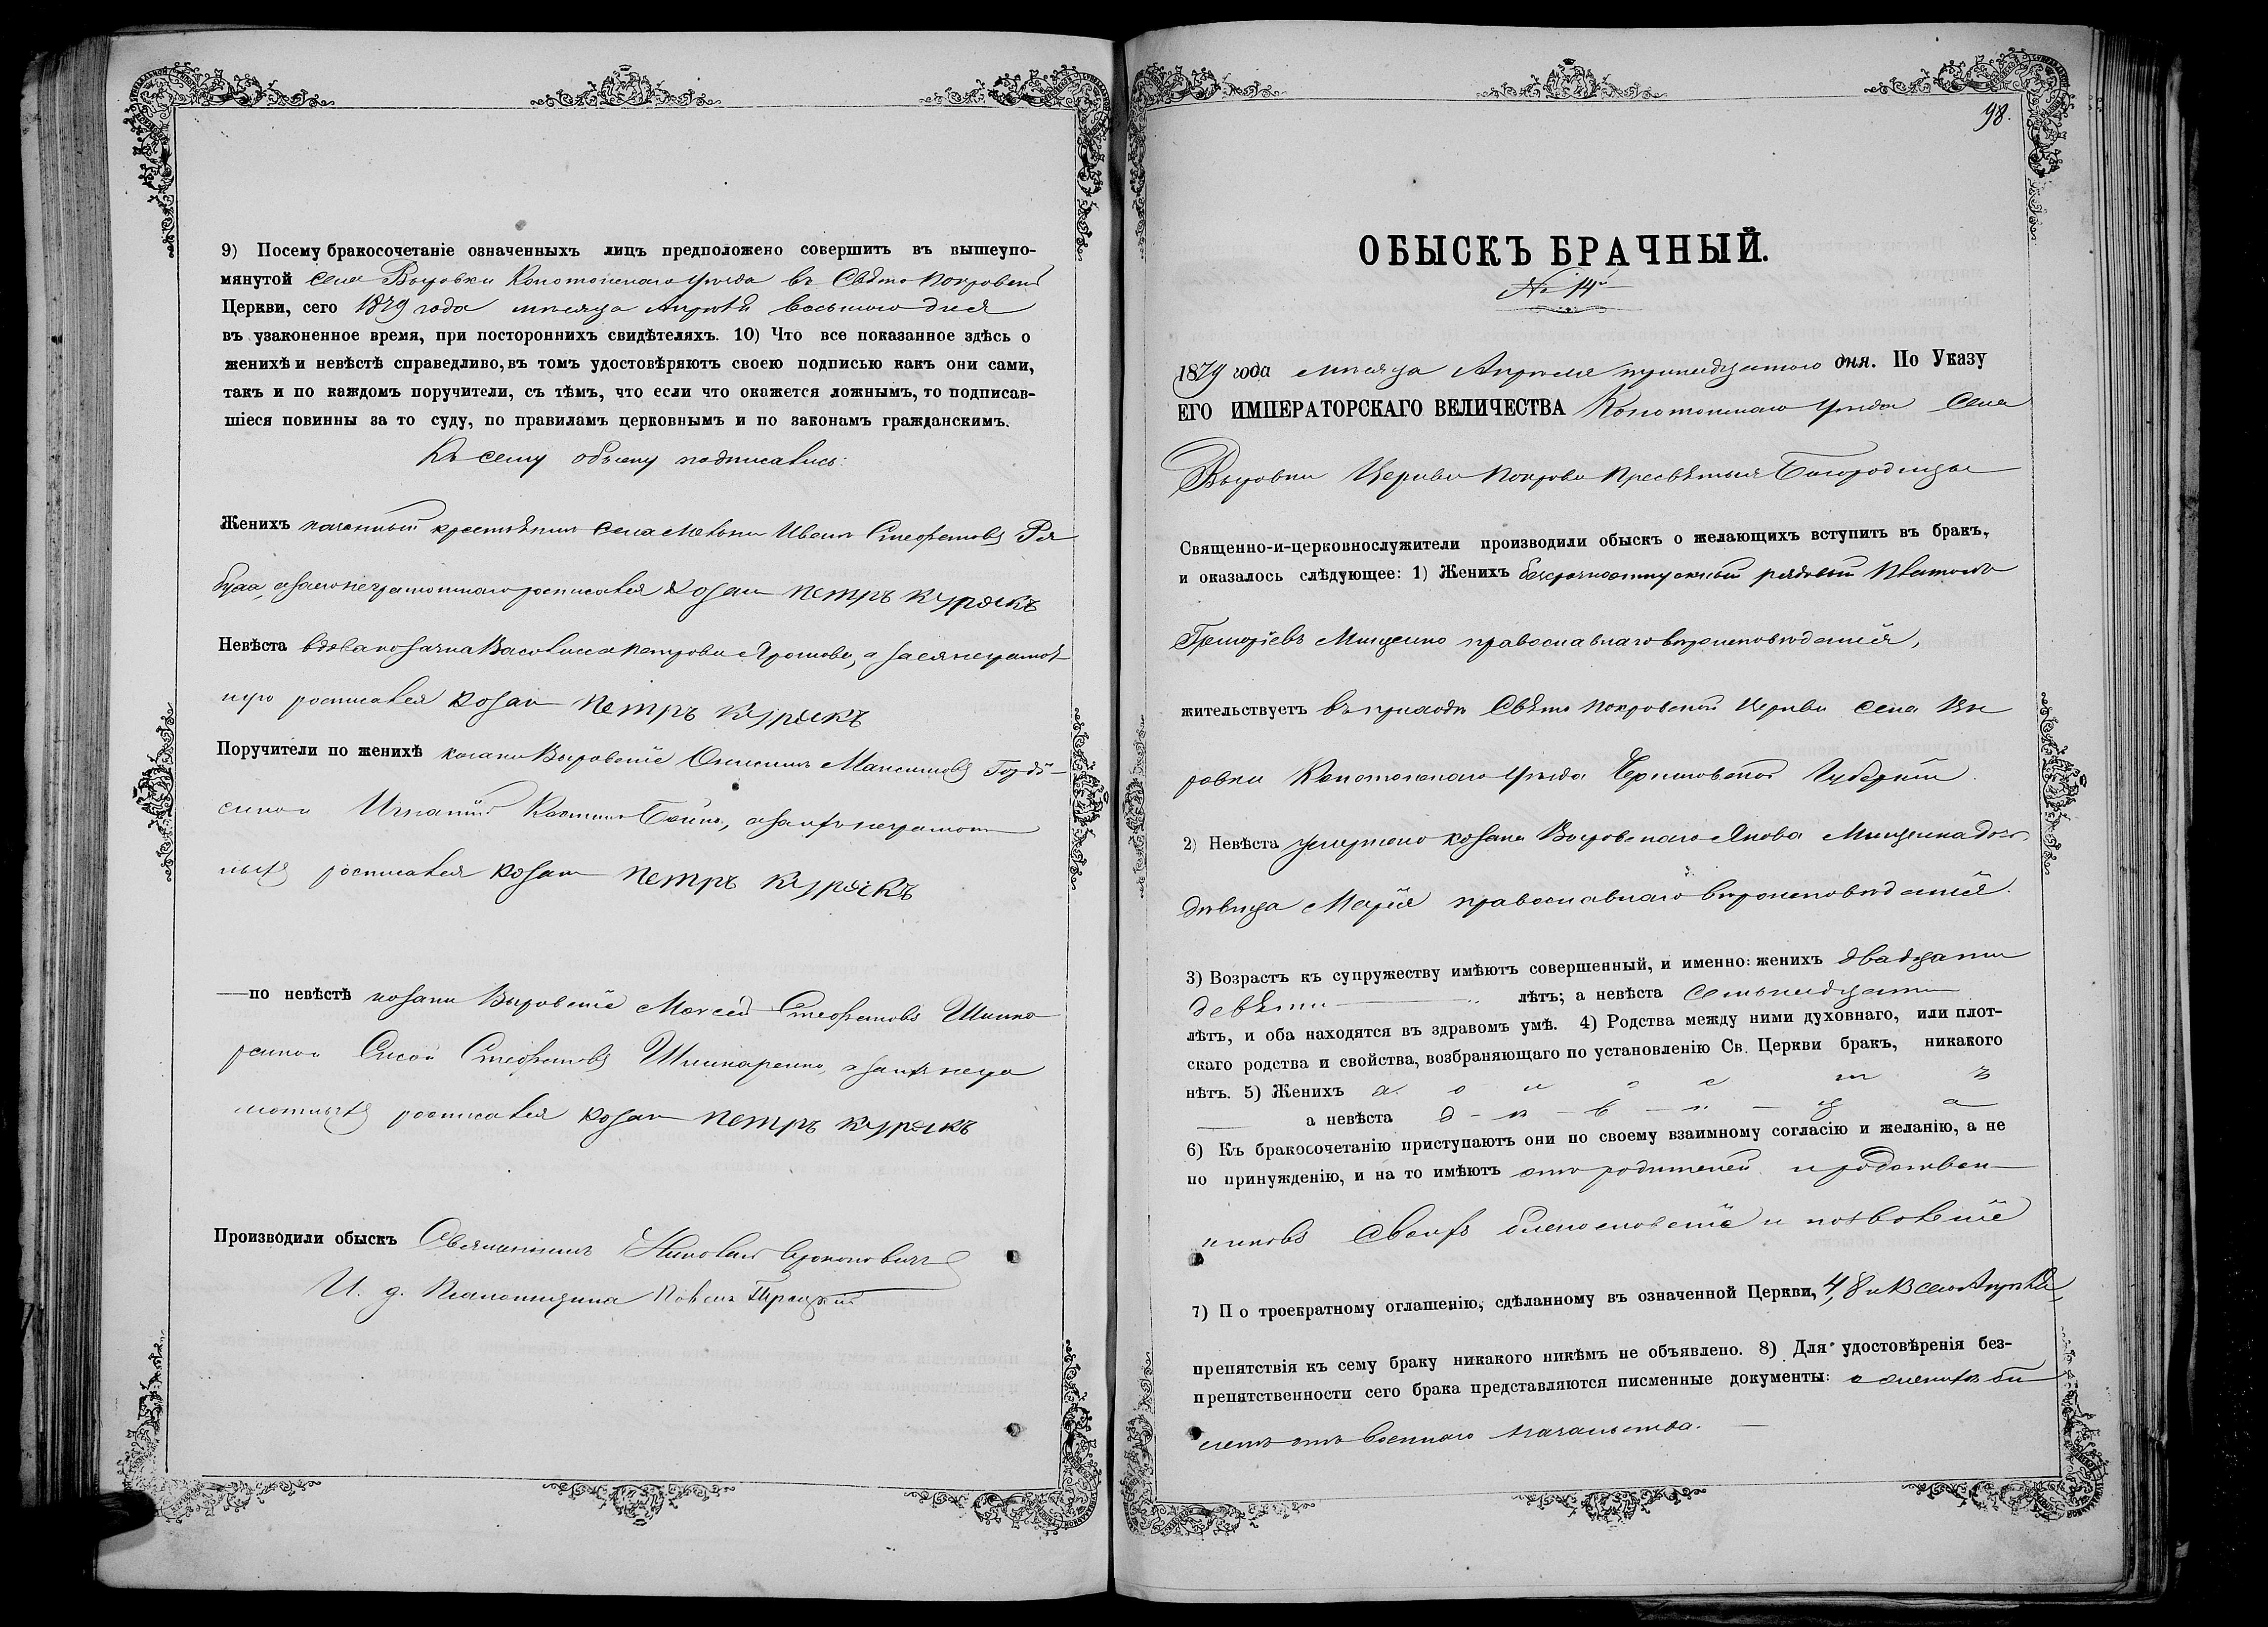 9) Посему бракосочетаніе означенныхъ лицъ предположено совершить въ вышеупо-
мянутой села Выровки Конотопскаго уѣзда въ Свято Покровской
Церкви, сего 1879 года мѣсяца Апрѣля восьмого дня
въ узаконенное время, при постороннихъ свидѣтеляхъ. 10) Что все показанное здѣсь о
женихѣ и невѣстѣ справедливо, въ томъ удостовѣряютъ своею подписью какъ они сами,
такъ и по каждомъ поручители, съ тѣмъ, что если что окажется ложнымъ, то подписав-
шіеся повинны за то суду, по правиламъ церковнымъ и по законамъ гражданскимъ.
Къ сему обыску подписались:
Женихъ крестьянинъ села Иванъ Стефановъ Ря
буха, а за него неграмотнаго росписался козакъ Петръ Курускъ
Невѣста вдова козачка Василисса Петрова а за ея неграмот-
ную росписался козакъ Петръ Курускъ
Поручители по женихѣ козаки Выровскіе Онисимъ Максимовъ
Игнатій а за ихъ неграмот
ныхъ росписался козакъ Петръ Курускъ
— по невѣстѣ козаки Выровскіе Моисей Стефановъ Шинка
ренко Сисой Стефановъ Шинкаренко, а за ихъ негра
мотныхъ росписался козакъ Петръ Курускъ
Производили обыскъ Священникъ Николай
И. д. Псаломщика Павелъ Троицкій
98.
ОБЫСКЪ БРАЧНЫЙ.
№ 14й
1879 года мѣсяца Апрѣля дня. По Указу
ЕГО ИМПЕРАТОРСКАГО ВЕЛИЧЕСТВА Конотопскаго уѣзда Села
Выровки Церкви Покрова Пресвятыя Богородицы
Священно-и-церковнослужители производили обыскъ о желающихъ вступить въ бракъ,
и оказалось слѣдующее: 1) Женихъ безсрочноотпускный рядовый Платонъ
Григоріевъ Мищенко православнаго вѣроисповѣданія,
жительствуетъ въ приходѣ Свято Покровской Церкви села Вы
ровки Конотопскаго уѣзда Черниговской Губерніи.
2) Невѣста умершаго козака Выровскаго Якова Мищенка дочь
дѣвица Марія православнаго вѣроисповѣданія.
3) Возрастъ къ супружеству имѣютъ совершенный, и именно: женихъ двадцати
девяти — лѣтъ; а невѣста семьнадцати
лѣтъ, и оба находятся въ здравомъ умѣ. 4) Родства между ними духовнаго, или плот-
скаго родства и свойства, возбраняющаго по установленію Св. Церкви бракъ, никакого
нѣтъ. 5) Женихъ х о л о с т ъ
а невѣста д - ѣ - в - и - ц - а
6) Къ бракосочетанію приступаютъ они по своему взаимному согласію и желанію, а не
по принужденію, и на то имѣютъ отъ родителей и родствен-
никовъ своихъ благословеніе и позволеніе
7) П о троекратному оглашенію, сдѣланному въ означенной Церкви, 4, 8 и сего Апрѣля,
препятствія къ сему браку никакого никѣмъ не объявлено. 8) Для удостовѣренія без-
препятственности сего брака представляются писменные документы: о женихѣ би
летъ отъ военнаго начальства. —